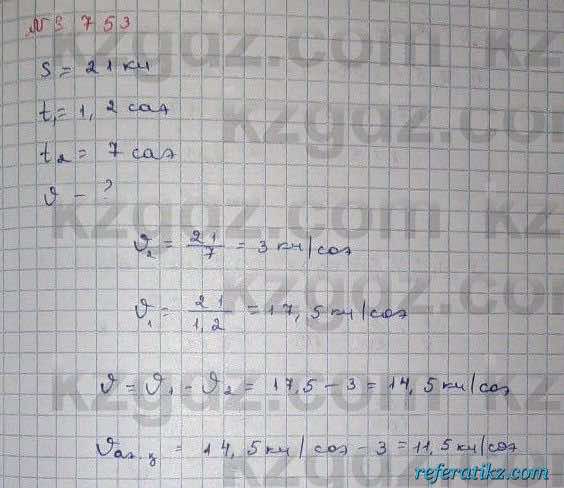 № 753
S = 21 км
t₁ = 1,2 сағ
t₂ = 7 сағ
𝜗 - ?
𝜗₂ = 21/7 = 3 км/сағ
𝜗₁ = 21/1,2 = 17,5 км/сағ
𝜗 = 𝜗₁ - 𝜗₂ = 17,5 - 3 = 14,5 км/сағ
𝜗 = 14,5 км/сағ - 3 = 11,5 км/сағ
kzgdz.com
referatikz.com